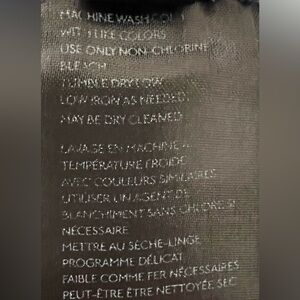 MACHINE WASH COLD
WITH LIKE COLORS
USE ONLY NON-CHLORINE
BLEACH
TUMBLE DRY LOW
LOW IRON AS NEEDED
MAY BE DRY CLEANED
LAVAGE EN MACHINE A
TEMPÉRATURE FROIDE
AVEC COULEURS SIMILAIRES
UTILISER UN AGENT DE
BLANCHIMENT SANS CHLORE SI
NÉCESSAIRE
METTRE AU SÈCHE-LINGE
PROGRAMME DÉLICAT
FAIBLE COMME FER NÉCESSAIRES
PEUT-ÊTRE ÊTRE NETTOYÉE SEC